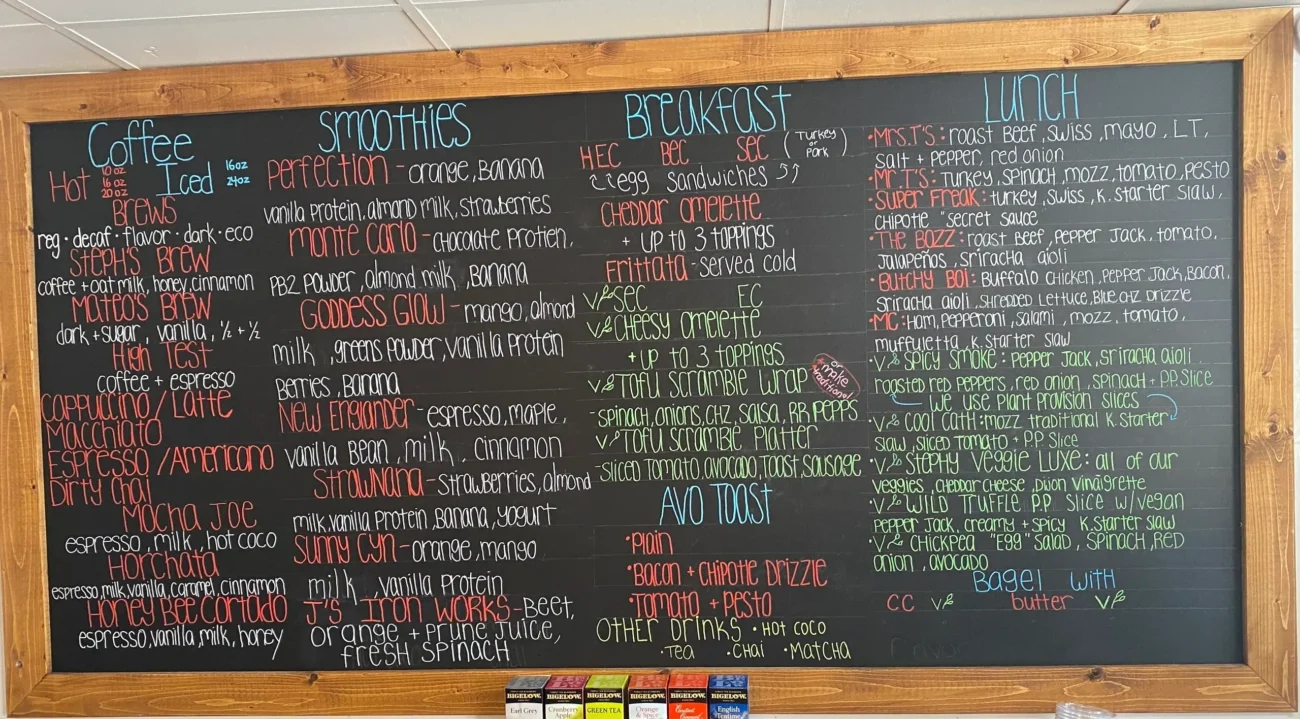 Coffee
Hot 10 oz 16 oz 20 oz Iced 16oz 24oz
BREWS
reg • decaf • flavor • dark • eco
STEPH'S BREW
coffee + oat milk, honey, cinnamon
MATEO'S BREW
dark + sugar, vanilla, ½ + ½
HIGH TEST
coffee + espresso
CAPPUCCINO / LATTE
MACCHIATO
ESPRESSO / AMERICANO
DIRTY CHAI
MOCHA JOE
espresso, milk, hot coco
HORCHATA
espresso, milk, vanilla, caramel, cinnamon
HONEY BEE CORTADO
espresso, vanilla, milk, honey
SMOOTHIES
PERFECTION - orange, Banana
vanilla Protein, almond milk, strawberries
MONTE CARLO - CHOCOLATE PROTIEN,
PB2 POWDER, almond milk, Banana
GODDESS GLOW - mango, almond
milk, greens powder, vanilla Protein
Berries, Banana
NEW ENGLANDER - espresso, maple,
vanilla Bean, milk, cinnamon
STRAWNANA - strawberries, almond
milk, vanilla Protein, Banana, yogurt
SUNNY CYN - orange, mango
milk, vanilla Protein
J'S IRON WORKS - Beet,
orange + prune juice,
fresh spinach
BREAKFAST
HEC BEC SEC (Turkey or Pork)
egg sandwiches
CHEDDAR OMELETTE
+ UP TO 3 TOPPINGS
FRITTATA - served cold
V SEC EC
V CHEESY OMELETTE
+ UP TO 3 TOPPINGS
V TOFU SCRAMBLE WRAP
* or make traditional
- SPINACH, ONIONS, CHZ, SALSA, RR PEPPS
V TOFU SCRAMBLE PLATTER
- SLICED TOMATO, AVOCADO, TOAST, SAUSAGE
AVO TOAST
• Plain
• Bacon + CHIPOTLE DRIZZLE
• TOMATO + PESTO
OTHER DRINKS • HOT COCO
• TEA • CHAI • MATCHA
LUNCH
• MRS. T'S: roast Beef, swiss, mayo, LT,
salt + pepper, red onion
• MR. T'S: Turkey, spinach, mozz, tomato, pesto
• SUPER FREAK: turkey, swiss, K. Starter slaw,
CHIPOTLE "secret sauce
• THE BAZZ: roast Beef, PEPPER JACK, TOMATO,
JALAPEÑOS, SRIRACHA aioli
• BUTCHY BOI: Buffalo Chicken, Pepper Jack, Bacon,
Sriracha aioli, SHREDDED LETTUCE, Blue CHZ DRIZZLE
• MC: Ham, Pepperoni, Salami, mozz, tomato,
muffuletta, K. starter slaw
• V SPICY SMOKE: PEPPER JACK, SRIRACHA aioli
roasted red peppers, red onion, spinach + P.P. SLICE
we use PLANT PROVISION slices
• V COOL CATH: mozz traditional K. Starter
Slaw, sliced Tomato + P.P. Slice
• V STEPHY VEGGIE LUXE: all of our
VEGGIES, CHEDDAR CHEESE, DIJON VINAIGRETTE
• V WILD TRUFFLE P.P. SLICE W/VEGAN
PEPPER JACK, CREAMY + SPICY K. Starter SLAW
• V CHICKPEA "EGG" SALAD, SPINACH, RED
onion, avocado
BAGEL WITH
CC V butter V
BIGELOW Earl Grey
BIGELOW Cranberry Apple
BIGELOW GREEN TEA
BIGELOW Orange & Spice
BIGELOW Constant Comment
BIGELOW English Teatime